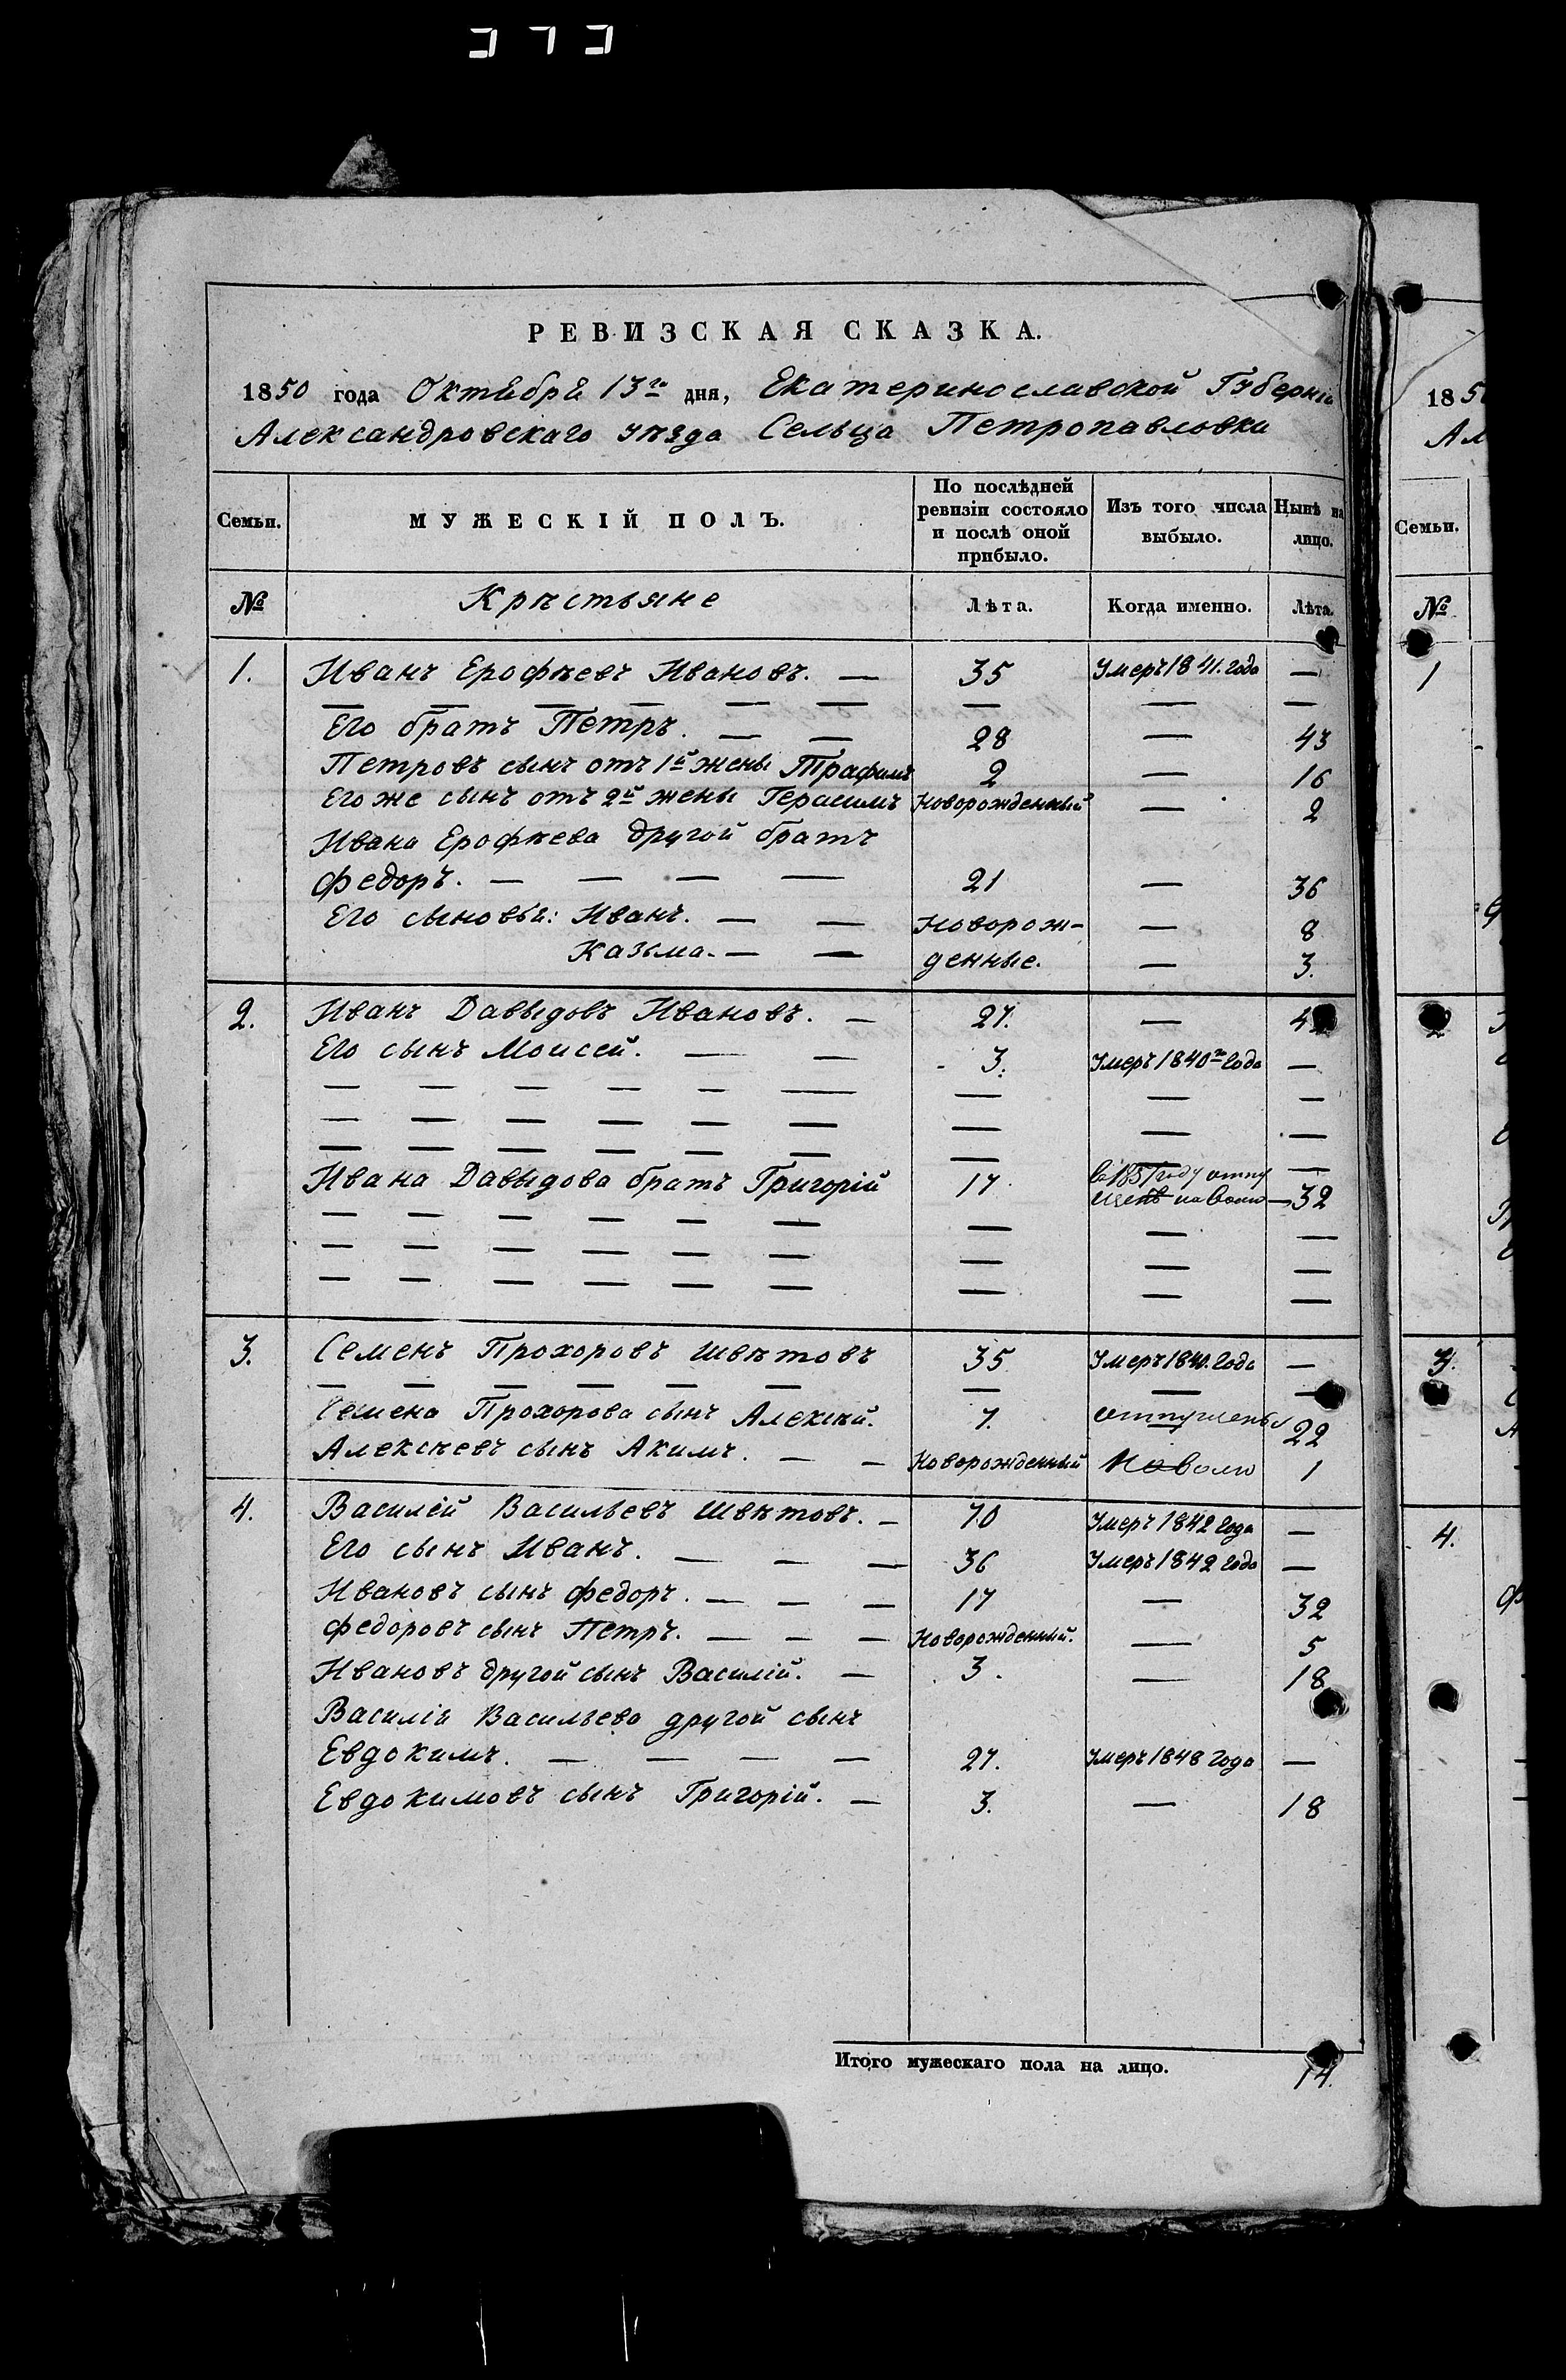 РЕВИЗСКАЯ СКАЗКА.
1850 года Октября 13го дня, Екатеринославской Губерніи
Александровскаго уѣзда Сельца Петропавловки
Семьи. МУЖЕСКІЙ ПОЛЪ. По послѣдней ревизіи состояло и послѣ оной прибыло. Изъ того числа выбыло. Нынѣ на лицо.
№ Крѣстьяне Лѣта. Когда именно. Лѣта.
1. Иванъ Ерофѣевъ Ивановъ. — 35 Умеръ 1841. года —
— — — — — — — — —
Его братъ Петръ. — — 28 — 43
Петровъ сынъ отъ 1й жены Трафимъ 2 — 16
Его же сынъ отъ 2й жены Герасимъ Новорожденный — 2
Ивана Ерофѣева другой братъ
Федоръ. — — — — 21 — 36
Его сыновья: Иванъ. — — Новорож- — 8
Казьма. — — денные. — 3.
2. Иванъ Давыдовъ Ивановъ. — 27. — 4
Его сынъ Моисей. — — 3. Умеръ 1840го года —
— — — — — — — — —
— — — — — — — — —
— — — — — — — — —
Ивана Давыдова братъ Григорій 17 въ 1851 году отпу
щенъ на волю — 32
— — — — — — — — —
— — — — — — — — —
— — — — — — — — —
3. Семенъ Прохоровъ Швѣтовъ 35 Умеръ 1840. года —
— — — — — — — — —
Семена Прохорова сынъ Алексѣй. 7. отпущены 22
Алексѣевъ сынъ Акимъ. — — Новорожденный На волю 1
4. Василей Васильевъ Швѣтовъ. — 70 Умеръ 1842 года —
Его сынъ Иванъ. — — — 36 Умеръ 1842 года —
Ивановъ сынъ Федоръ. — — — 17 — 32
Федоровъ сынъ Петръ. — — — Новорожденный. — 5
Ивановъ другой сынъ Василій. — 3. — 18
Василія Васильева другой сынъ
Евдокимъ. — — — — 27. Умеръ 1848 года —
Евдокимовъ сынъ Григорій. — 3. — 18
Итого мужескаго пола на лицо. 14.
185
Ал
Семьи.
№
1
2
3.
4.